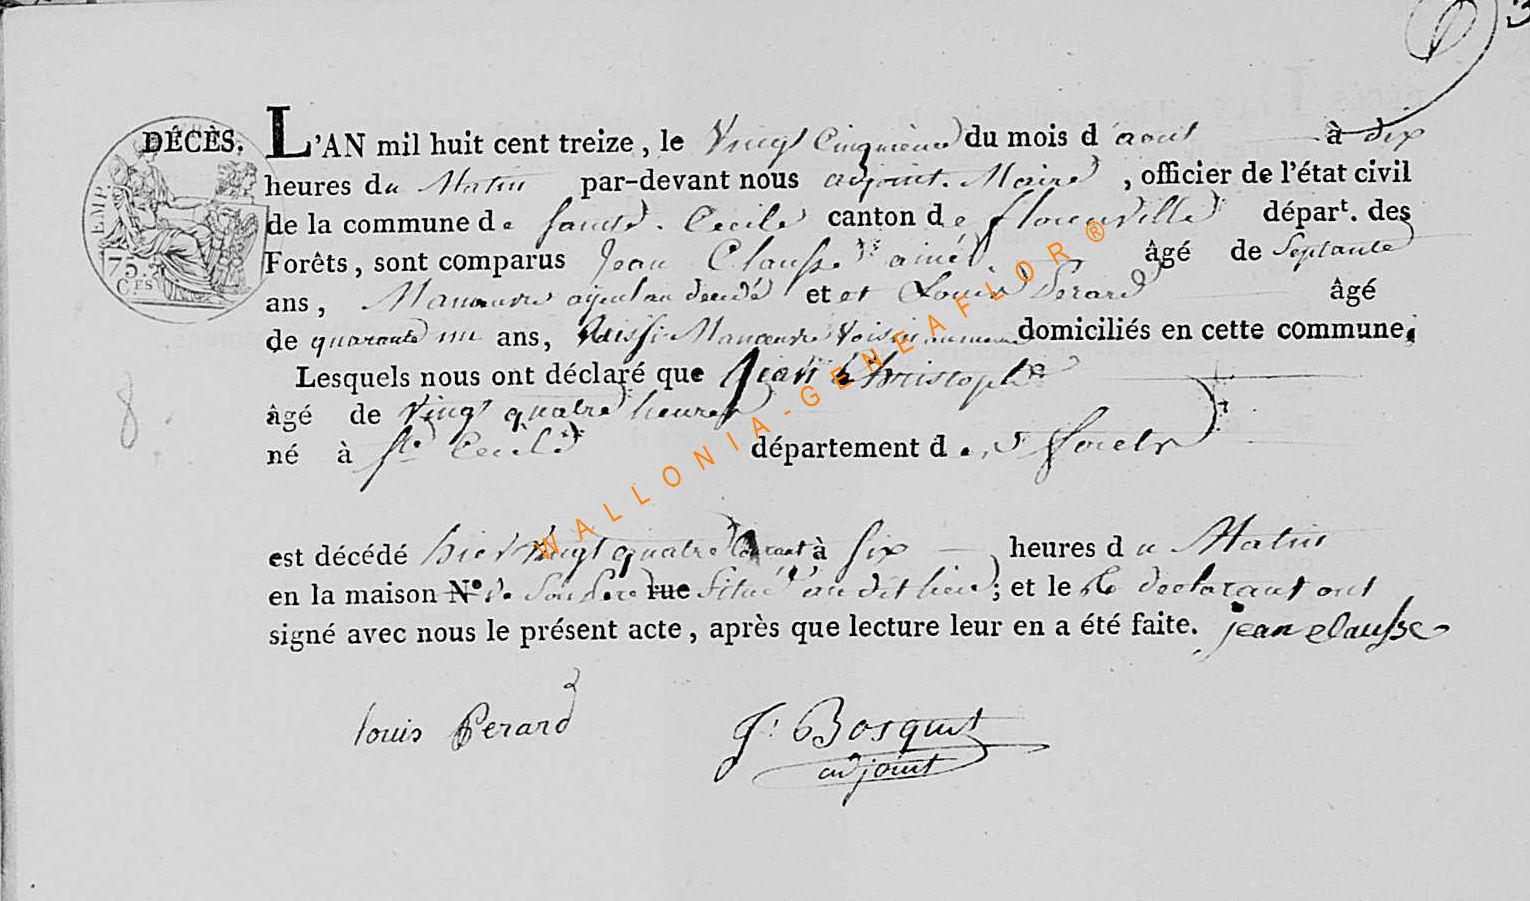 3
DÉCÈS.
EMP.
75.
C.ES
L'AN mil huit cent treize, le Vingt Cinquieme du mois d'aout à dix
heures du Matin par-devant nous adjoint. Maire, officier de l'état civil
de la commune de Sainte. Cecile canton de florenville dépar.t des
Forêts, sont comparus Jean Clausse ainé âgé de Septante
ans, Manœuvre ajeul au decedé et et Louis Perard âgé
de quarante un ans, Aussi Manœuvre Voisin domiciliés en cette commune.
Lesquels nous ont déclaré que Jean Christophe
âgé de Vingt quatre heures
né à Ste Cecile département de forets
8.
est décédé hier Vingt quatre Courant à six heures du Matin
en la maison N.o de son pere rue situé au dit lieu; et le declarant ont
signé avec nous le présent acte, après que lecture leur en a été faite. jean clausse
louis Perard
J: Bosquet
adjoint
WALLONIA-GENEAFLOR®